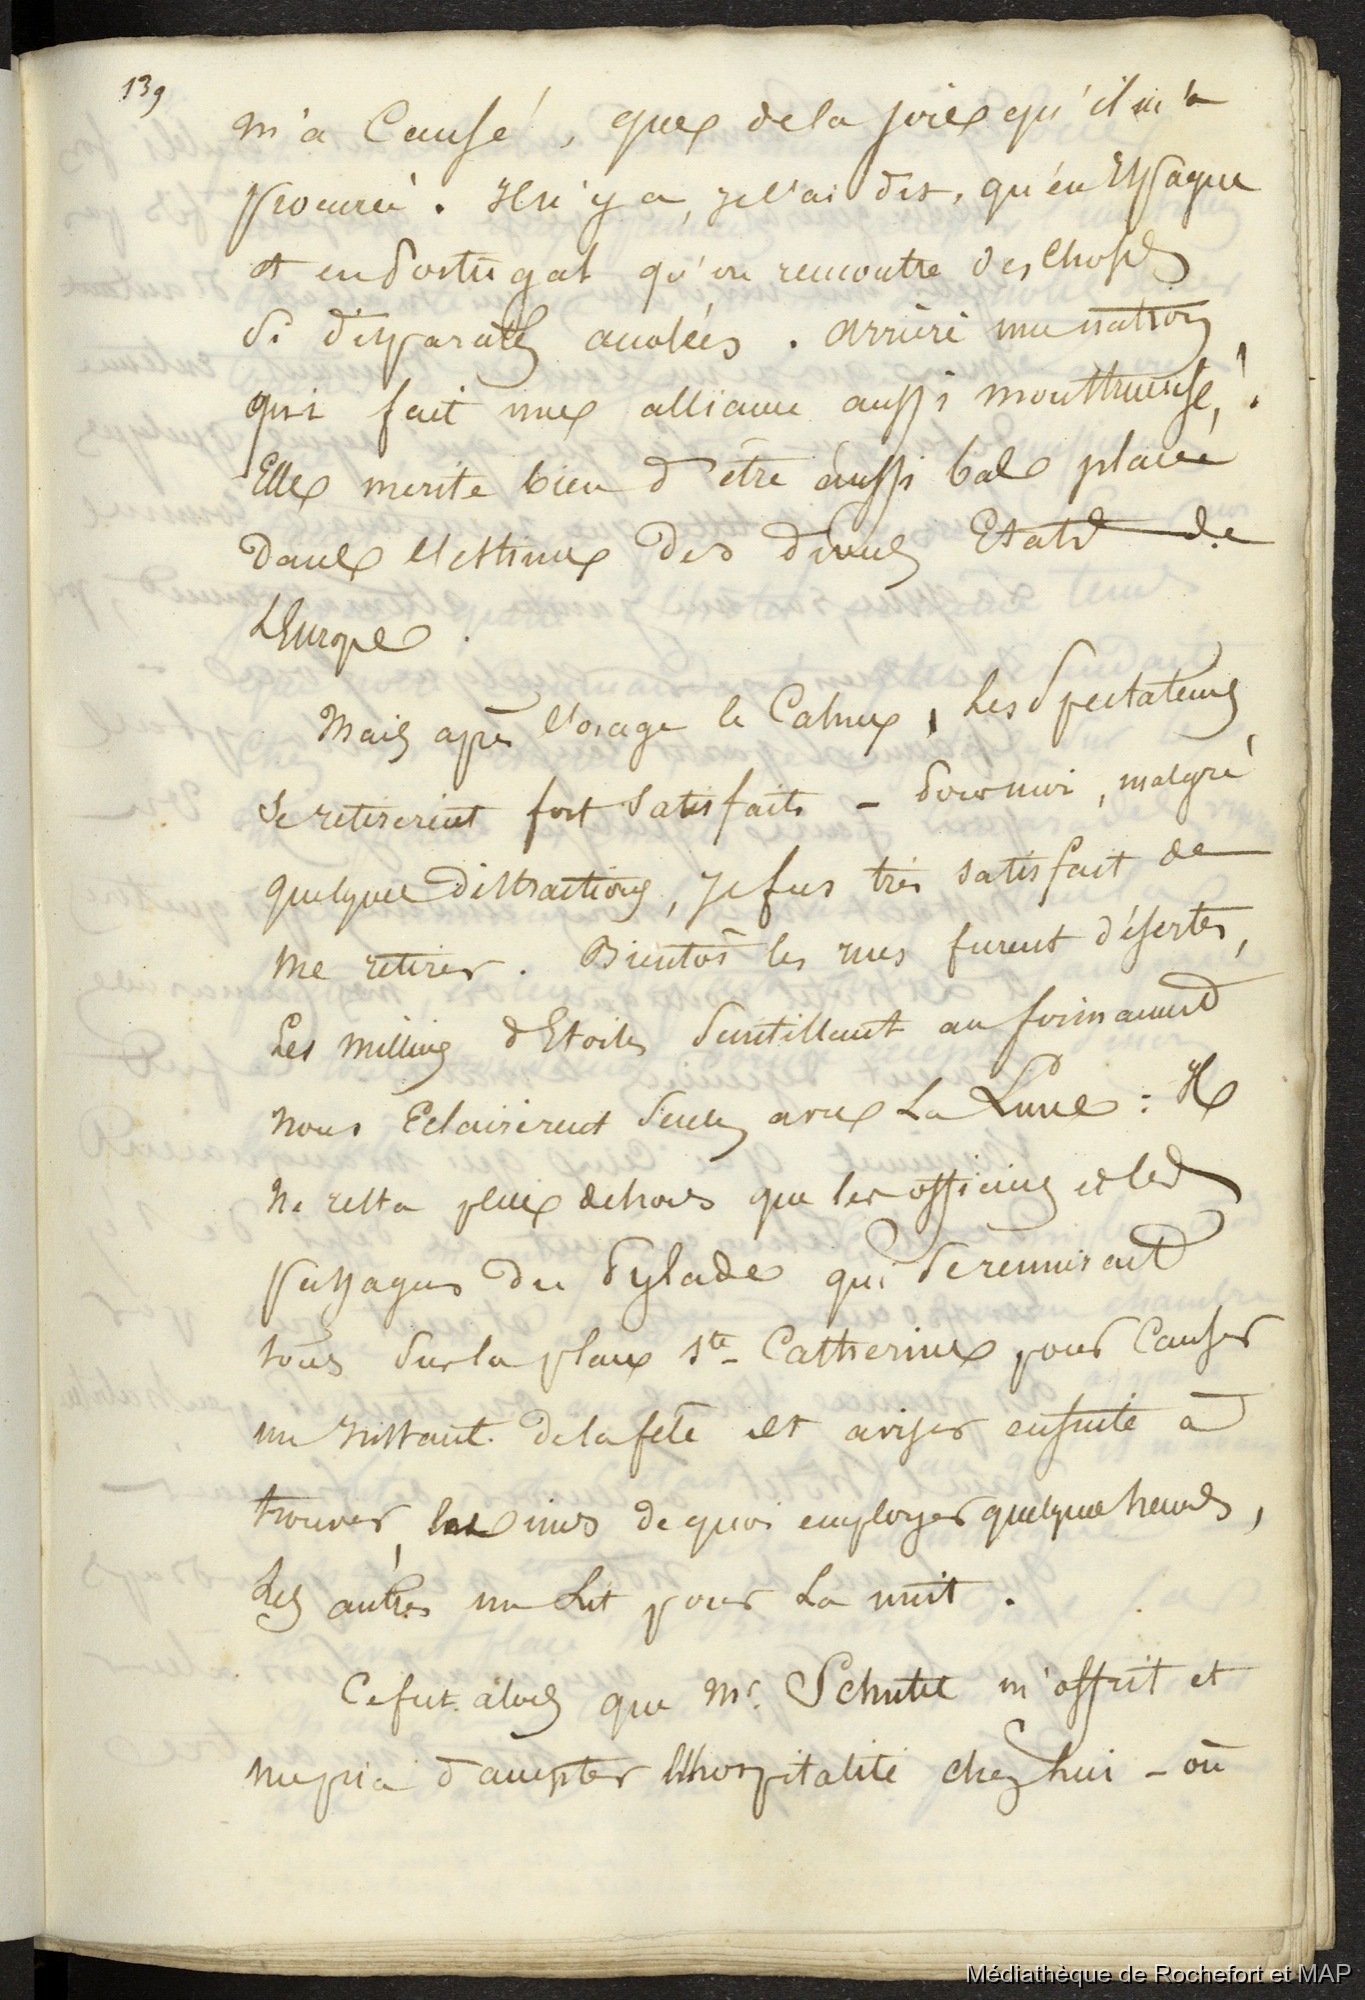 139
m'a Causé, que de la joie qu'il m'a
procuré. Il n'y a, je l'ai dit, qu'en Espagne
et en Portugal qu'on rencontre des choses
si disparates accolées. arrière une nation
qui fait une alliance aussi monstrueuse!.
Elle merite bien d'être aussi bas placée
dans l'estime des divers Etats de
L'Europe.
Mais après l'orage le Calme, Les Spectateurs
se retirerent fort satisfaits – Pour moi, malgré
quelques distractions, je fus très satisfait de
me retirer. Bientôt les rues furent désertes,
Les millions d'Etoiles Scintillant au firmament
nous Eclairèrent Seules avec La Lune : Il
ne resta plus dehors que les officiers et les
passagers du Pylade qui Se reunirent
tous Sur la place Ste Catherine pour Causer
un instant de la fête et aviser ensuite à
trouver, les uns de quoi employer quelques heures,
Les autres un Lit pour La nuit.
Ce fut alors que Mr. Schutel m'offrit et
me pria d'accepter l'hospitalité chez lui – où
Médiathèque de Rochefort et MAP